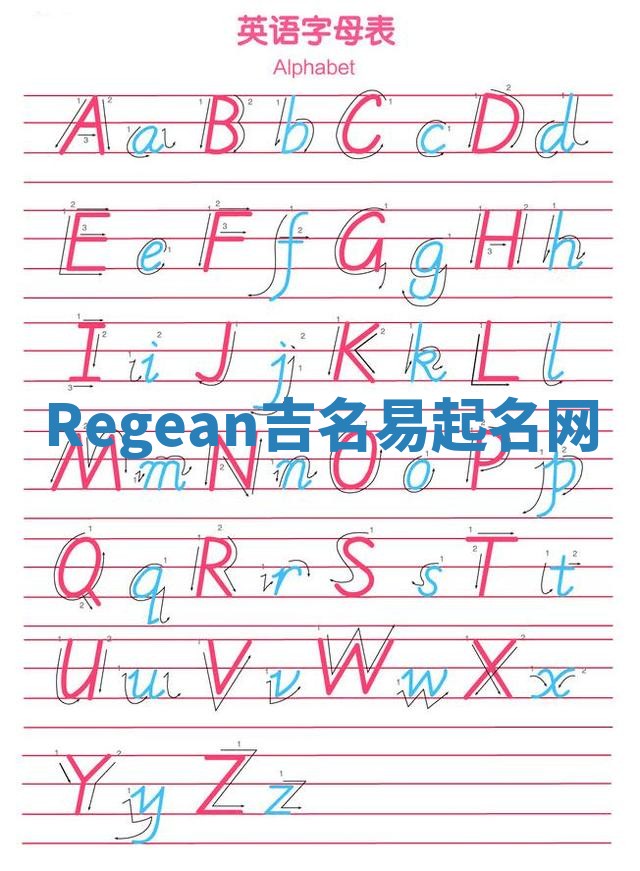 英语字母表
Alphabet
A a B b C c D d
E e F f G g H h
I i J j K k L l
Regean吉名易起名网
M m N n O o P p
Q q R r S s T t
U u V v W w X x
Y y Z z